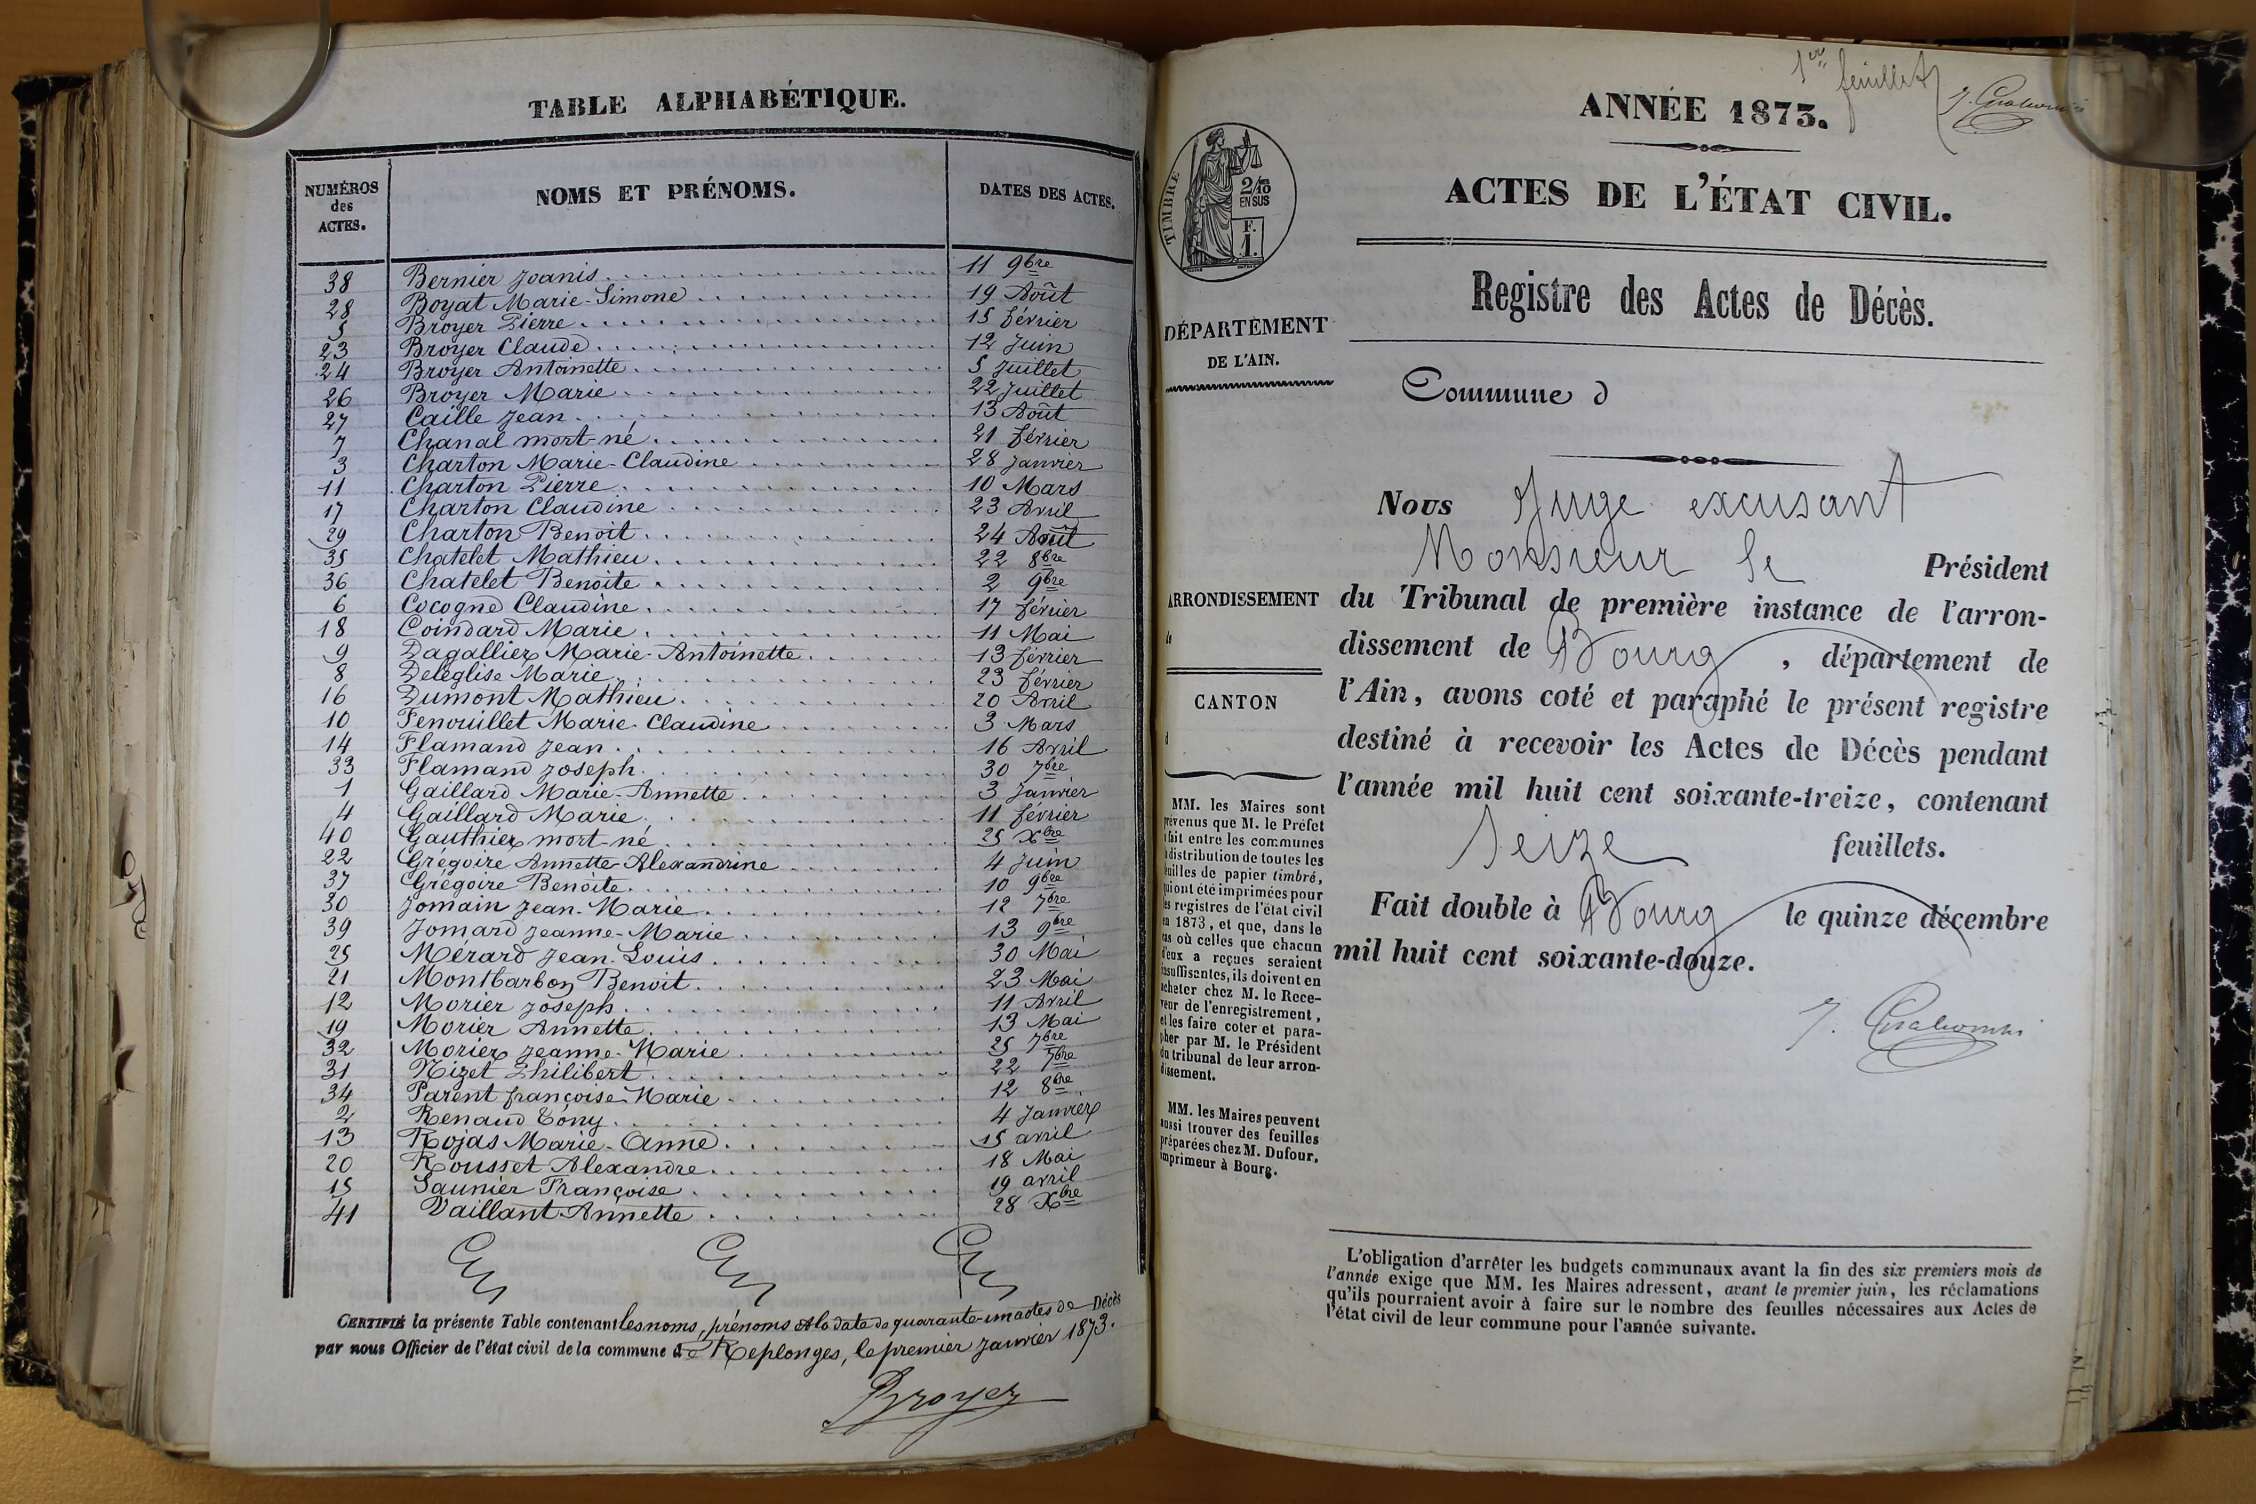 TABLE ALPHABÉTIQUE.
NUMÉROS des ACTES. NOMS ET PRÉNOMS. DATES DES ACTES.
38 Bernier Joanis 11 9bre
28 Boyat Marie-Simone 19 Août
5 Broyer Pierre 15 février
23 Broyer Claude 12 Juin
24 Broyer Antoinette 5 Juillet
26 Broyer Marie 22 Juillet
27 Caille Jean 13 Août
7 Chanal mort-né 21 février
3 Charton Marie-Claudine 28 Janvier
11 Charton Pierre 10 Mars
17 Charton Claudine 23 Avril
29 Charton Benoit 24 Août
35 Chatelet Mathieu 22 8bre
36 Chatelet Benoite 2 9bre
6 Cocogne Claudine 17 février
18 Coindard Marie 11 Mai
9 Dagallier Marie-Antoinette 13 février
8 Deléglise Marie 23 février
16 Dumont Mathieu 20 Avril
10 Fenouillet Marie-Claudine 3 Mars
14 Flamand Jean 16 Avril
33 Flamand Joseph 30 7bre
1 Gaillard Marie-Annette 3 Janvier
4 Gaillard Marie 11 février
40 Gauthier mort-né 25 Xbre
22 Grégoire Annette-Alexandrine 4 Juin
37 Grégoire Benoite 10 9bre
30 Jomain Jean-Marie 12 7bre
39 Jomard Jeanne-Marie 13 9bre
25 Mérard Jean-Louis 30 Mai
21 Montbarbon Benoit 23 Mai
12 Morier Joseph 11 Avril
19 Morier Annette 13 Mai
32 Morier Jeanne-Marie 25 7bre
31 Nizet Philibert 22 7bre
34 Parent françoise-Marie 12 8bre
2 Renaud Tóny 4 Janvier
13 Rojas Marie-Anne 15 avril
20 Rousset Alexandre 18 Mai
15 Saunier Françoise 19 avril
41 Vaillant Annette 28 Xbre
CERTIFIÉ la présente Table contenant les noms, prénoms et la date de quarante-un actes de Décès
par nous Officier de l'état civil de la commune de Replonges, le premier Janvier 1873.
Broyer
1er feuillet
ANNÉE 1873.
ACTES DE L'ÉTAT CIVIL.
Registre des Actes de Décès.
TIMBRE
2/10 EN SUS
F. 1.
DÉPARTEMENT
DE L'AIN.
Commune d
Nous Juge excusant
Monsieur le Président
ARRONDISSEMENT
du Tribunal de première instance de l'arron-
dissement de Bourg, département de
l'Ain, avons coté et paraphé le présent registre
destiné à recevoir les Actes de Décès pendant
l'année mil huit cent soixante-treize, contenant
seize feuillets.
Fait double à Bourg le quinze décembre
mil huit cent soixante-douze.
CANTON
d
MM. les Maires sont
prévenus que M. le Préfet
fait entre les communes
distribution de toutes les
feuilles de papier timbré,
qui ont été imprimées pour
les registres de l'état civil
en 1873, et que, dans le
cas où celles que chacun
d'eux a reçues seraient
insuffisantes, ils doivent en
acheter chez M. le Rece-
veur de l'enregistrement,
et les faire coter et para-
pher par M. le Président
du tribunal de leur arron-
dissement.
MM. les Maires peuvent
aussi trouver des feuilles
préparées chez M. Dufour,
imprimeur à Bourg.
L'obligation d'arrêter les budgets communaux avant la fin des six premiers mois de
l'année exige que MM. les Maires adressent, avant le premier juin, les réclamations
qu'ils pourraient avoir à faire sur le nombre des feuilles nécessaires aux Actes de
l'état civil de leur commune pour l'année suivante.